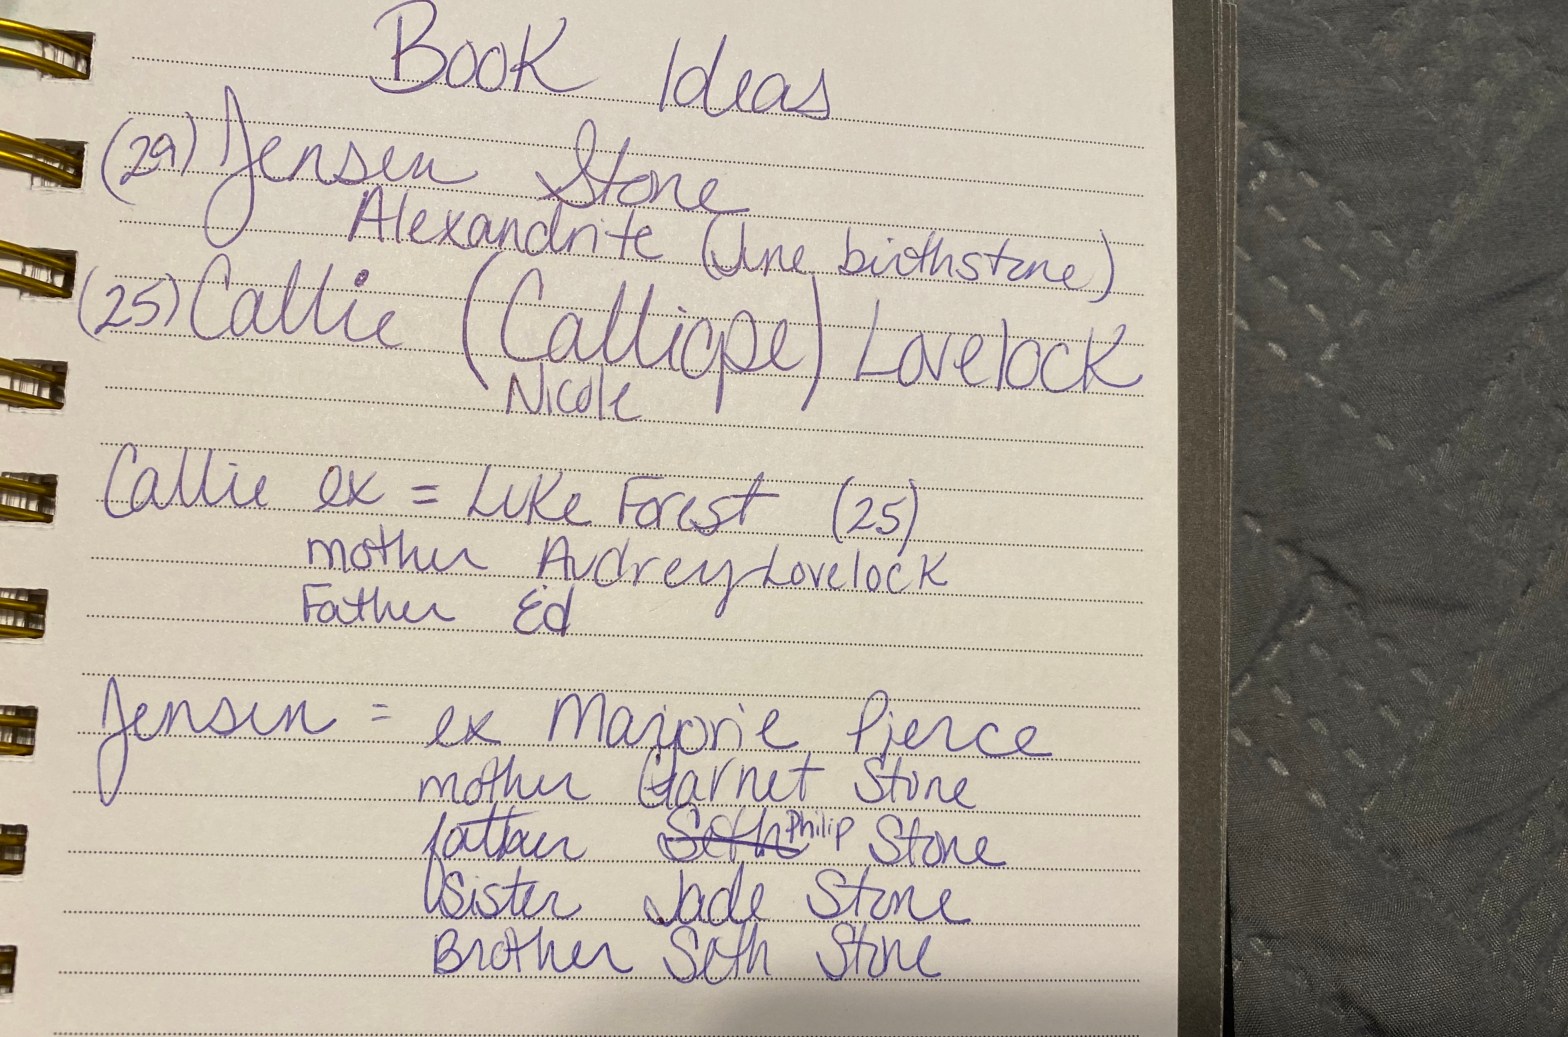 Book Ideas
(29) Jensen Stone
Alexandrite (June birthstone)
(25) Callie (Calliope) Lovelock
Nicole
Callie ex = Luke Forest (25)
mother Audrey Lovelock
Father Ed
Jensen = ex Marjorie Pierce
mother Garnet Stone
father Seth Philip Stone
Sister Jade Stone
Brother Seth Stone